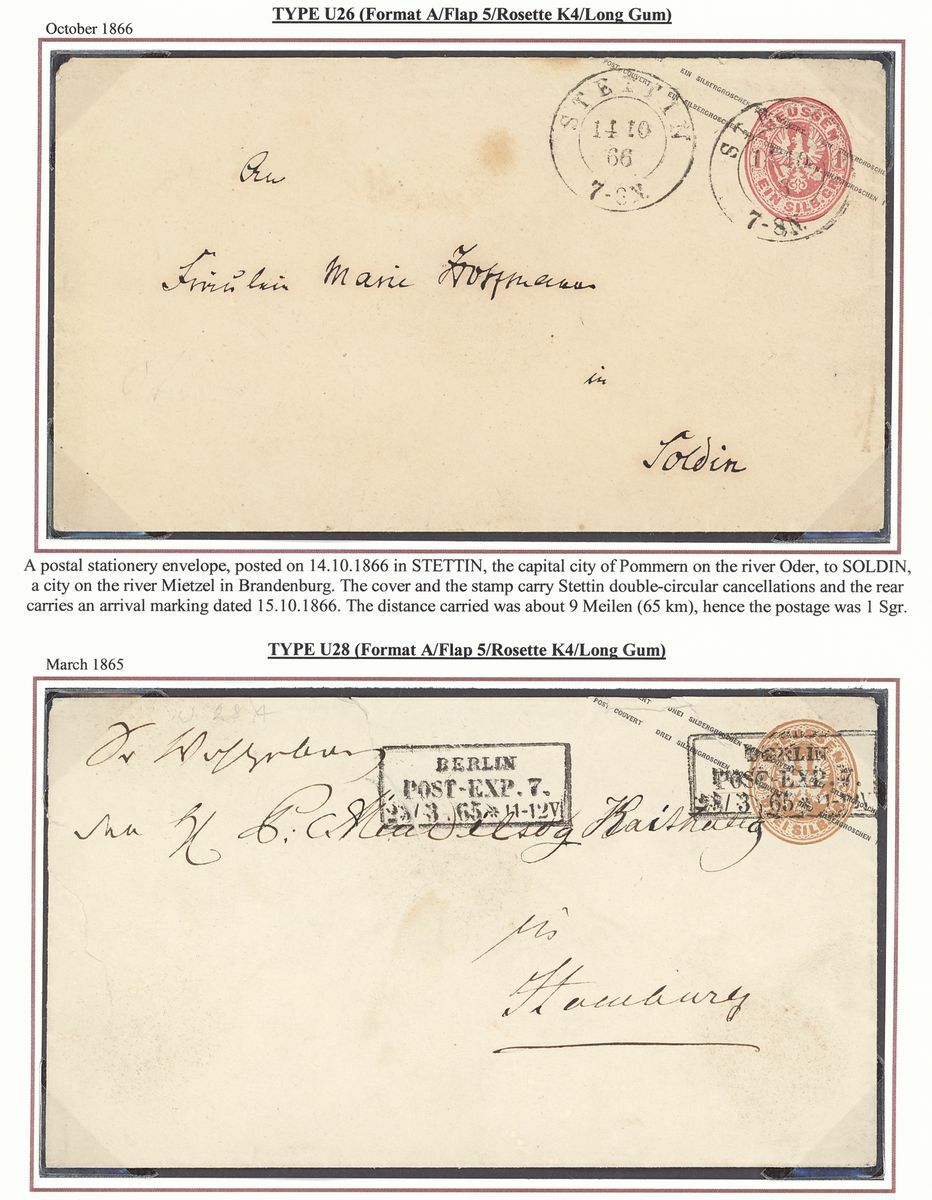 TYPE U26 (Format A/Flap 5/Rosette K4/Long Gum)
October 1866
POST COUVERT EIN SILBERGROSCHEN
EIN SILBERGROSCHEN
STETTIN
14 10
66
7-8N.
PREUSSEN
1 1
EIN SILB.GR.
7-8N.
SILBERGROSCHEN
An
Fräulein Marie Hoffmann
in
Soldin
A postal stationery envelope, posted on 14.10.1866 in STETTIN, the capital city of Pommern on the river Oder, to SOLDIN,
a city on the river Mietzel in Brandenburg. The cover and the stamp carry Stettin double-circular cancellations and the rear
carries an arrival marking dated 15.10.1866. The distance carried was about 9 Meilen (65 km), hence the postage was 1 Sgr.
TYPE U28 (Format A/Flap 5/Rosette K4/Long Gum)
March 1865
U 28 A
POST COUVERT DREI SILBERGROSCHEN
DREI SILBERGROSCHEN
Sr Wohlgeboren
BERLIN
POST-EXP. 7.
/3 65 11-12V
BERLIN
POST-EXP. 7.
/3 65 11-12V
SILBERGROSCHEN
den H
in
Hamburg